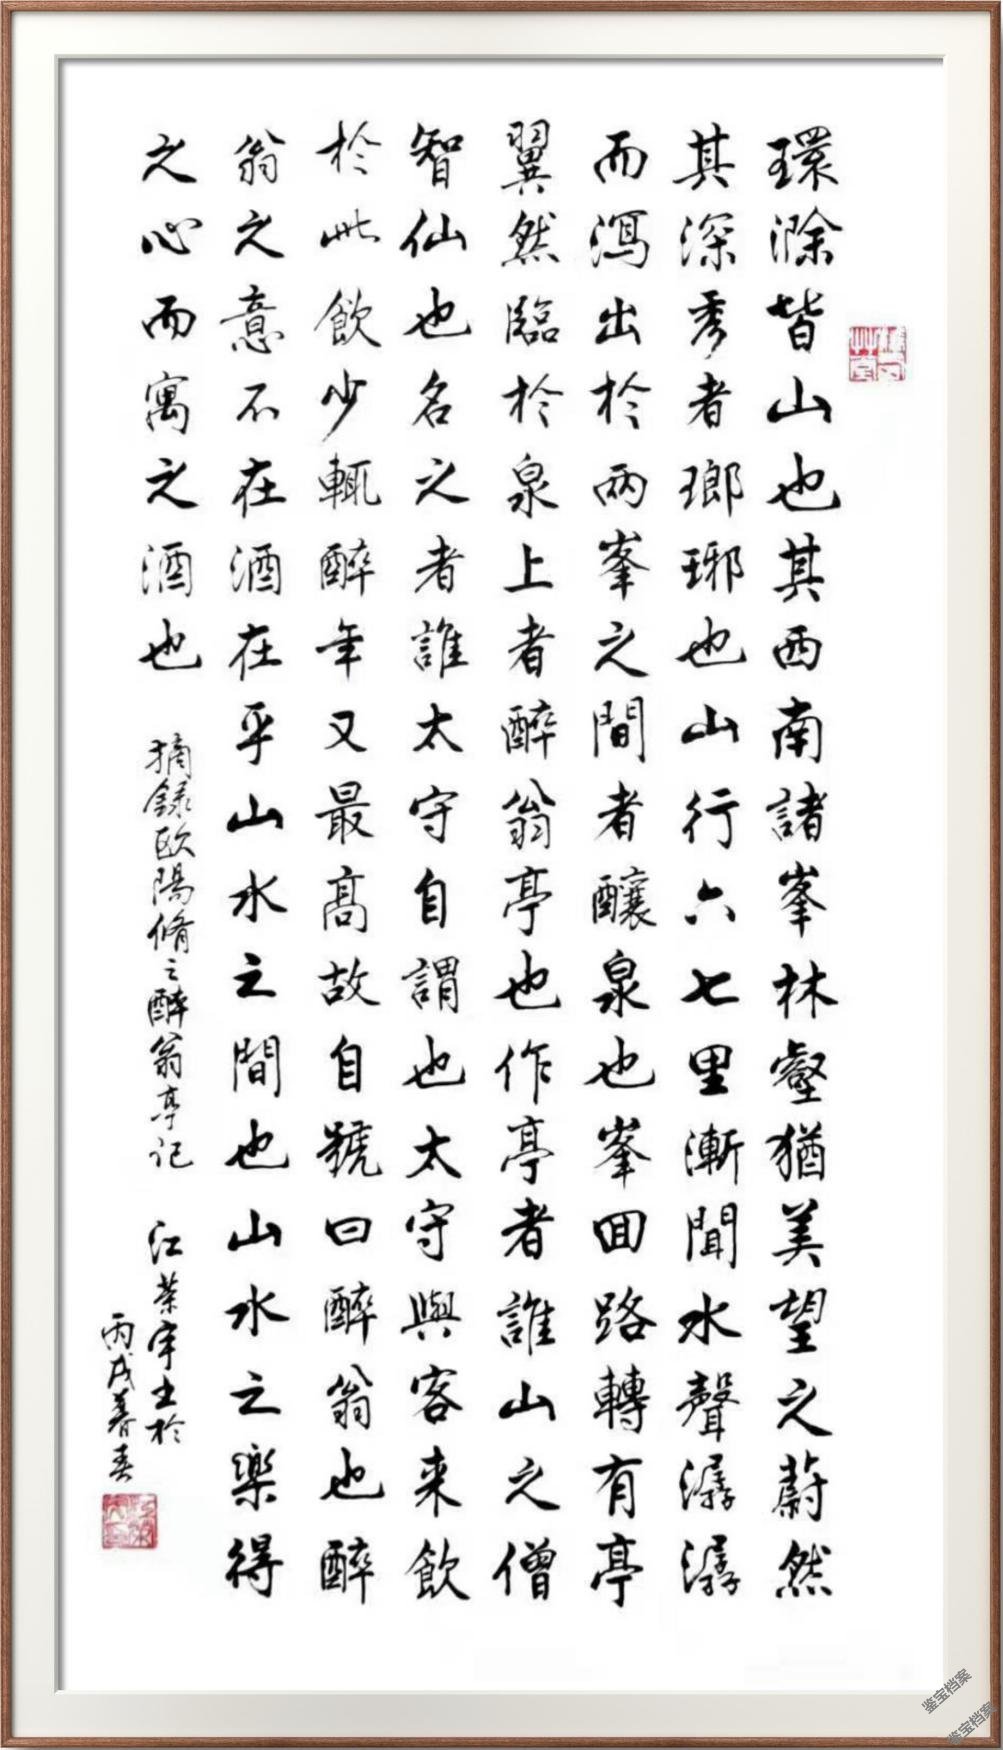 環滁皆山也其西南諸峯林壑猶美望之蔚然
其深秀者瑯琊也山行六七里漸聞水聲潺潺
而瀉出於兩峯之間者釀泉也峯囬路轉有亭
翼然臨於泉上者醉翁亭也作亭者誰山之僧
智仙也名之者誰太守自謂也太守與客来飲
於此飲少輒醉年又最髙故自號曰醉翁也醉
翁之意不在酒在乎山水之間也山水之樂得
之心而寓之酒也
摘録欧陽脩之醉翁亭记 江榮宇书於
丙戌暮春
鉴宝档案
鉴宝档案